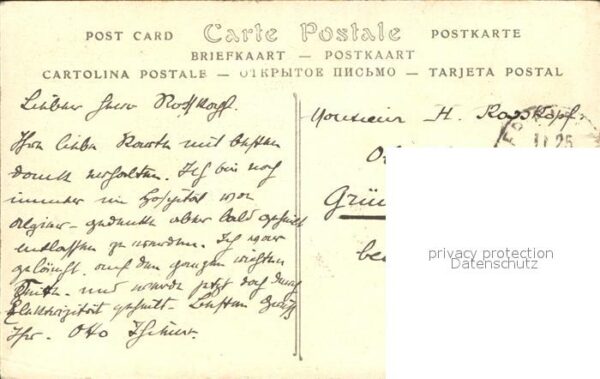 POST CARD Carte Postale POSTKARTE
BRIEFKAART — POSTKAART
CARTOLINA POSTALE — ОТКРЫТОЕ ПИСЬМО — TARJETA POSTAL
Lieber Herr Rosskopf.
Ihre liebe Karte mit bestem
Dank erhalten. Ich bin noch
immer im Hospital von
Algier - gedenke aber bald geheilt
entlassen zu werden. Ich war
gelähmt auf der ganzen rechten
Seite - und werde jetzt doch durch
Elektrizität geheilt - Besten Gruß
Ihr Otto
Monsieur H. Rosskopf
11 25
Grün
bei
privacy protection
Datenschutz